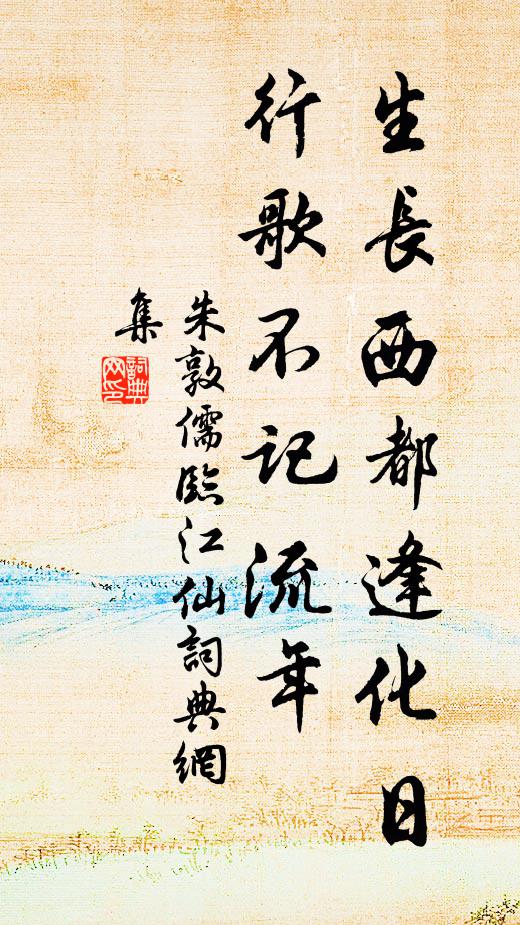 生長西都逢化日
行歌不記流年
朱敦儒臨江仙詞典網
集
詞典网印